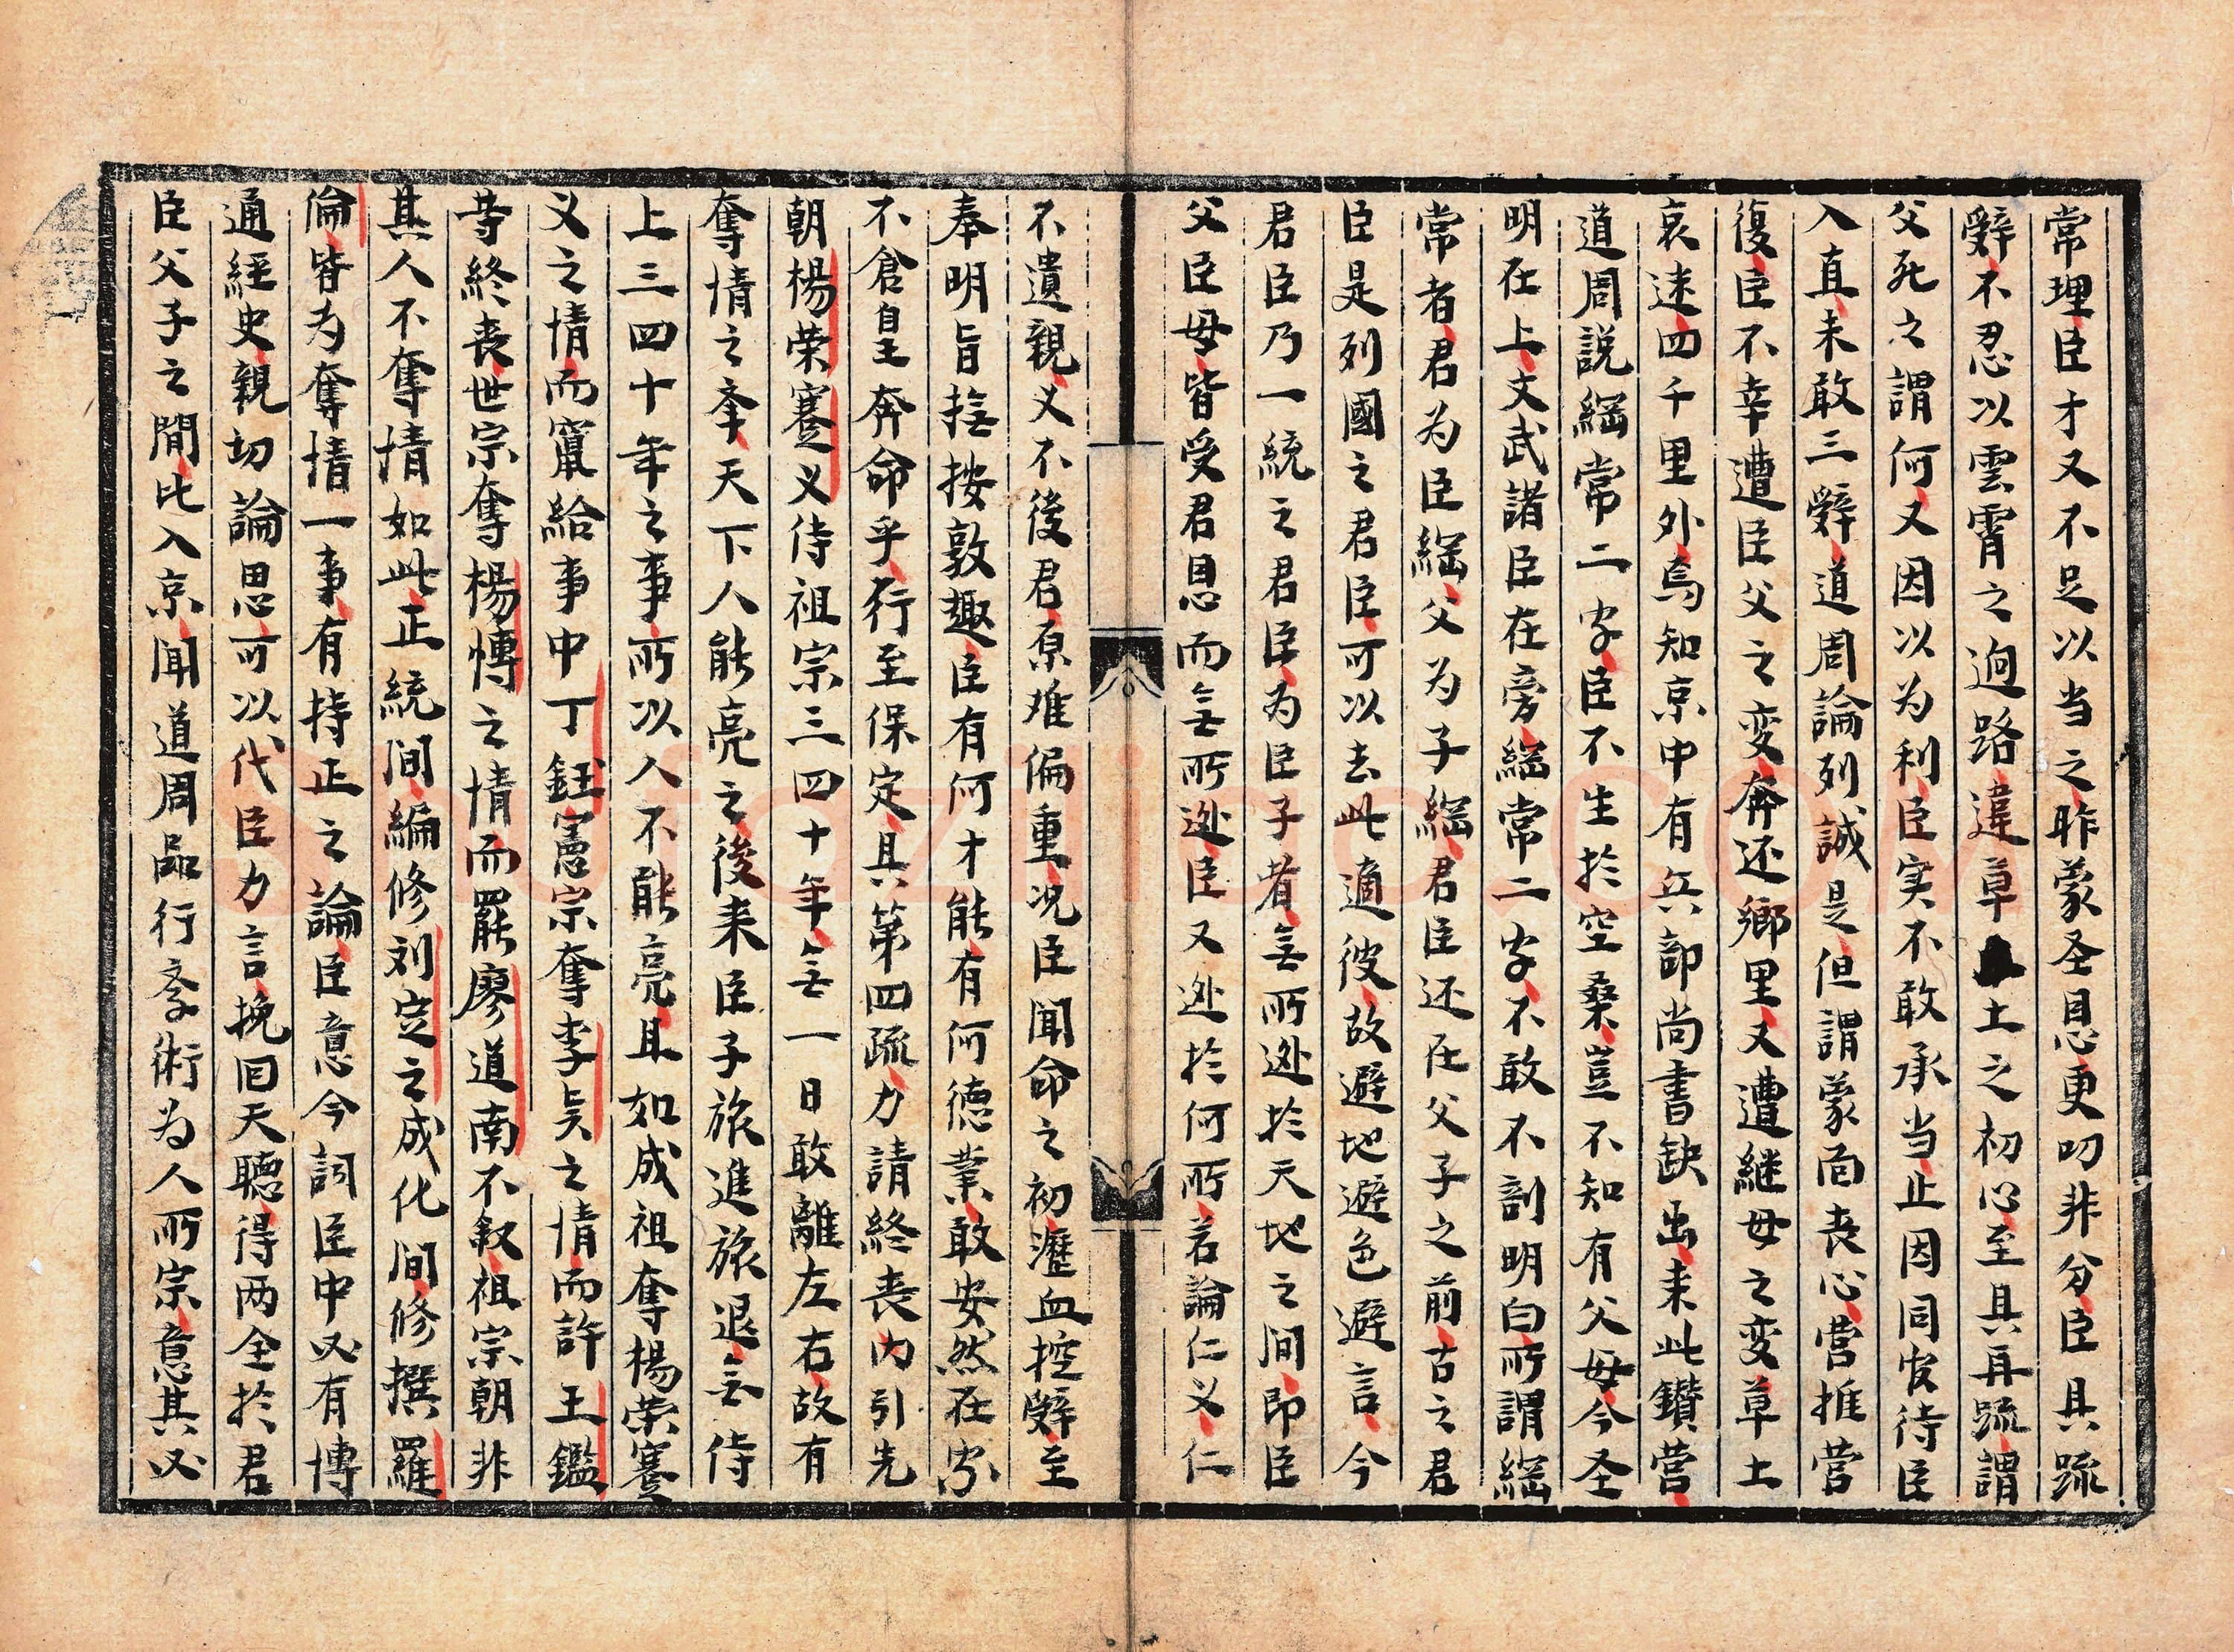 常理臣才又不足以当之昨蒙圣恩更叨非分臣具疏
辤不忍以雲霄之逈路違草土之初心至具再疏謂
父死之謂何又因以为利臣实不敢承当止因同官待臣
入直未敢三辤道周論列誠是但謂蒙面丧心营推营
復臣不幸遭臣父之变奔还鄉里又遭継母之变草土
哀迷四千里外烏知京中有兵部尚書缺出来此鑚营
道周説綱常二字臣不生於空桑豈不知有父母今圣
明在上文武諸臣在旁綱常二字不敢不剖明白所謂綱
常者君为臣綱父为子綱君臣还在父子之前古之君
臣是列國之君臣可以去此適彼故避地避色避言今
君臣乃一統之君臣为臣子者無所逃於天地之间即臣
父臣母皆受君恩而無所逃臣又逃於何所若論仁义仁
不遺親义不後君原难偏重况臣闻命之初瀝血控辤至
奉明旨撫按敦趣臣有何才能有何德業敢安然在家
不倉皇奔命乎行至保定具第四疏力請終丧内引先
朝楊荣蹇义侍祖宗三四十年無一日敢離左右故有
奪情之奉天下人能亮之後来臣子旅進旅退無侍
上三四十年之事所以人不能亮且如成祖奪楊荣蹇
义之情而竄給事中丁鈺憲宗奪李贤之情而許王鑑
等終丧世宗奪楊愽之情而罷廖道南不叙祖宗朝非
其人不奪情如此正統间編修刘定之成化间修撰羅
倫皆为奪情一事有持正之論臣意今詞臣中必有博
通經史親切論思可以代臣力言挽回天聽得两全於君
臣父子之間比入京闻道周品行学術为人所宗意其必